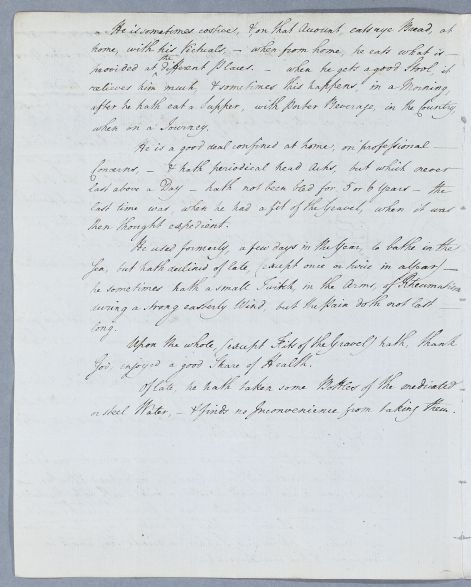 - He is sometimes costive, & on that Account, eats rye Bread, at
home, with his Victuals, - when from home, he eats what is -
provided at the different Places. - when he gets a good Stool, it
relieves him much, & sometimes this happens, in a Morning,
after he hath eat a Supper, with Porter Beverage, in the Country,
when on a Journey.
He is a good deal confined at home, on professional
Concerns, - & hath periodical head Achs, but which never
last above a Day - hath not been bled for 5 or 6 Years - the
last time was, when he had a fit of the Gravel, when it was
then thought expedient.
He used formerly, a few days in the Year, to bathe in the
Sea, but hath declined of late, (except once or twice in a Year) -
he sometimes hath a small Twitch, in the Arms, of Rheumatism
during a strong easterly Wind, but the Pain doth not last
long.
Upon the whole, (except Fits of the Gravel) hath, thank
God, enjoyed a good Share of Health.
Of late, he hath taken some Bottles of the medicated
or steel Water, - & finds no Inconvenience from taking them.